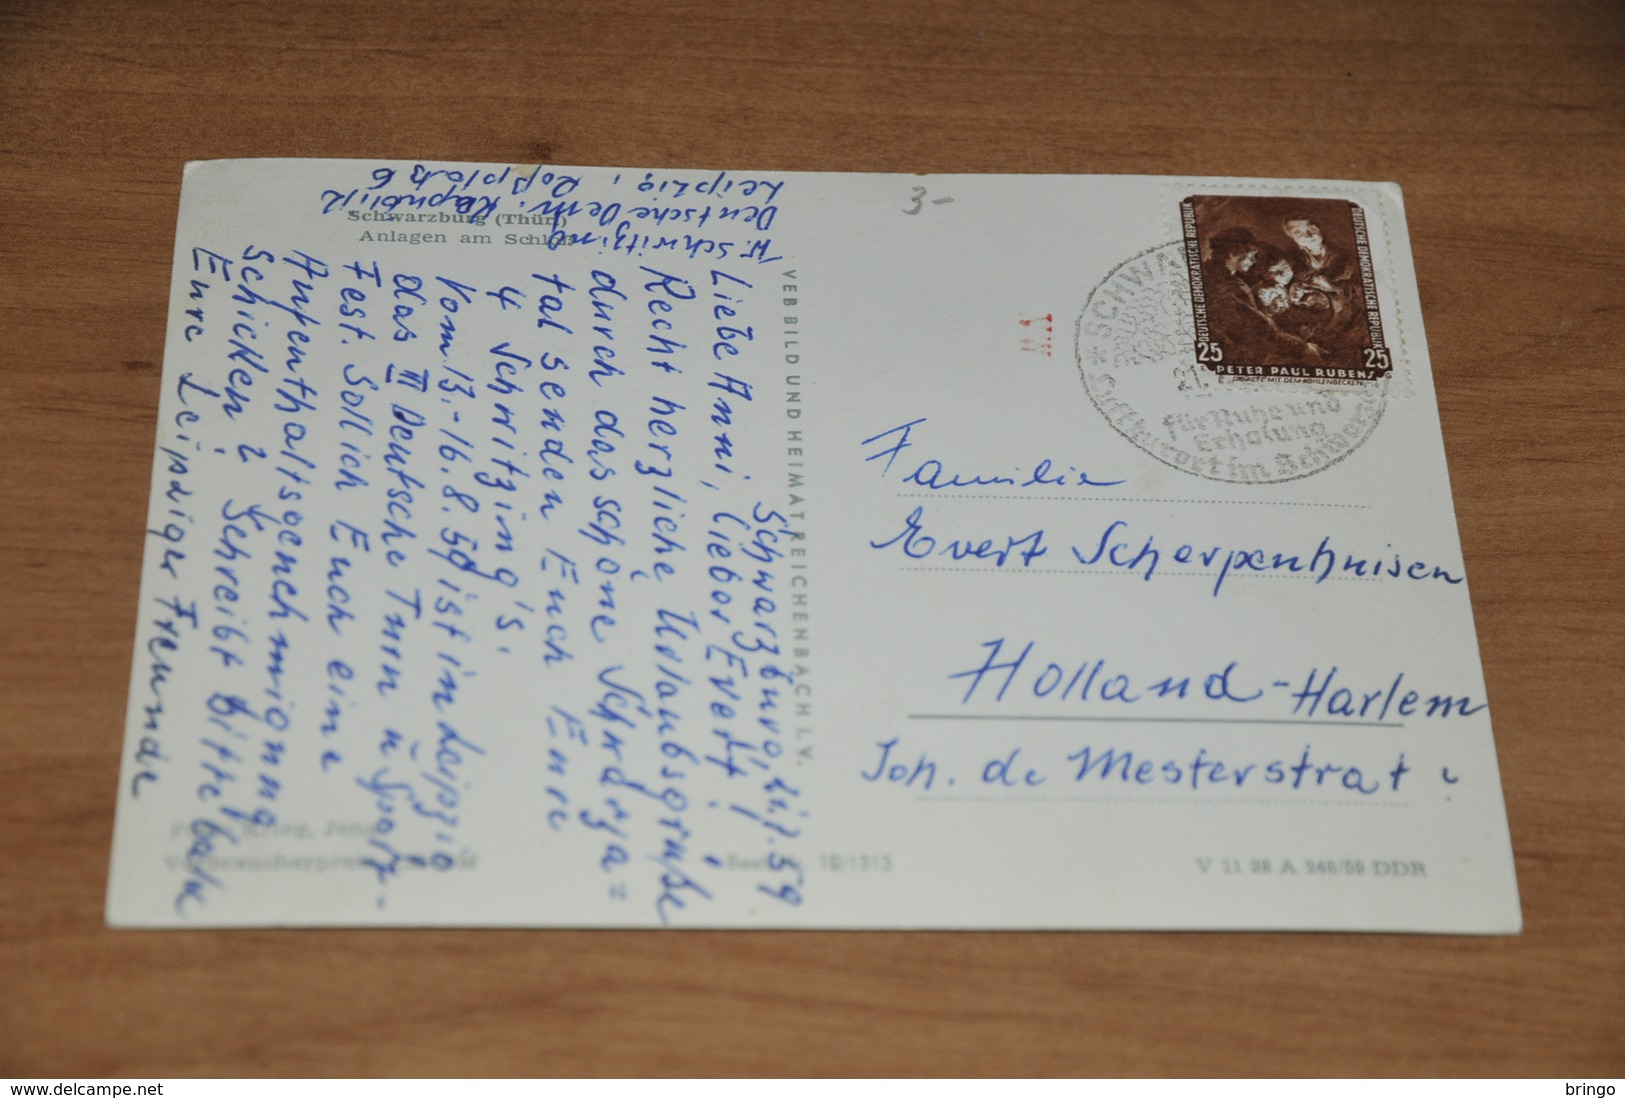 Schwarzburg (Thür.)
Anlagen am Schloß
W. Schwitzing
Deutsche Dem. Republik
Leipzig, Roßplatz 6
Schwarzburg, 21.7.59
Liebe Anni, lieber Evert!
Recht herzliche Urlaubsgrüße
durch das schöne Schwarza=
tal senden Euch Eure
4 Schwitzing's.
Vom 13.-16.8.59 ist in Leipzig
das III Deutsche Turn u Sport-
Fest. Soll ich Euch eine
Aufenthaltsgenehmigung
schicken? Schreibt bitte bald
Eure Leipziger Freunde
VEB BILD UND HEIMAT REICHENBACH I.V.
3-
DEUTSCHE DEMOKRATISCHE REPUBLIK
DEUTSCHE DEMOKRATISCHE REPUBLIK
25
25
PETER PAUL RUBENS
für Ruhe und
Erholung
Luftkurort im
Familie
Evert Scherpenhuisen
Holland-Harlem
Joh. de Mesterstrat
10/1313
V 11 28 A 246/59 DDR
delcampe.net
bringo